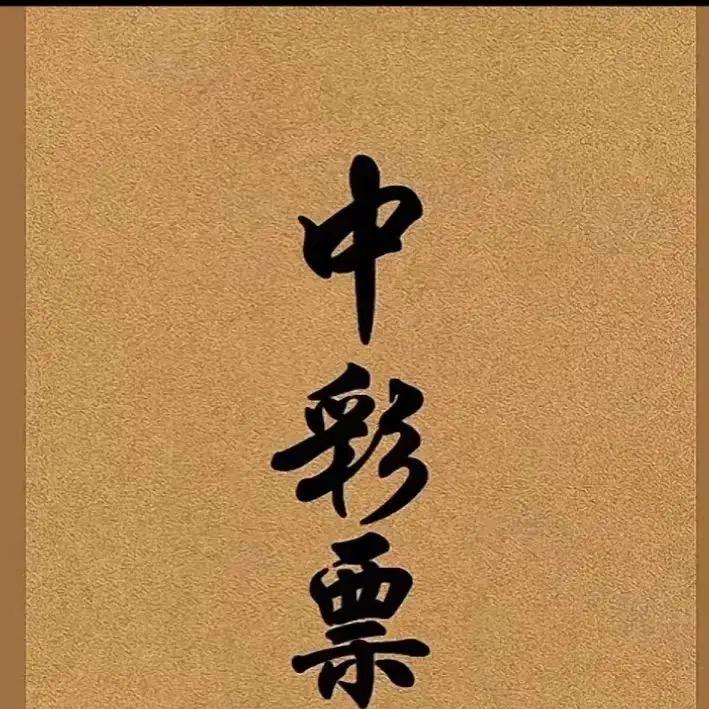 中彩票